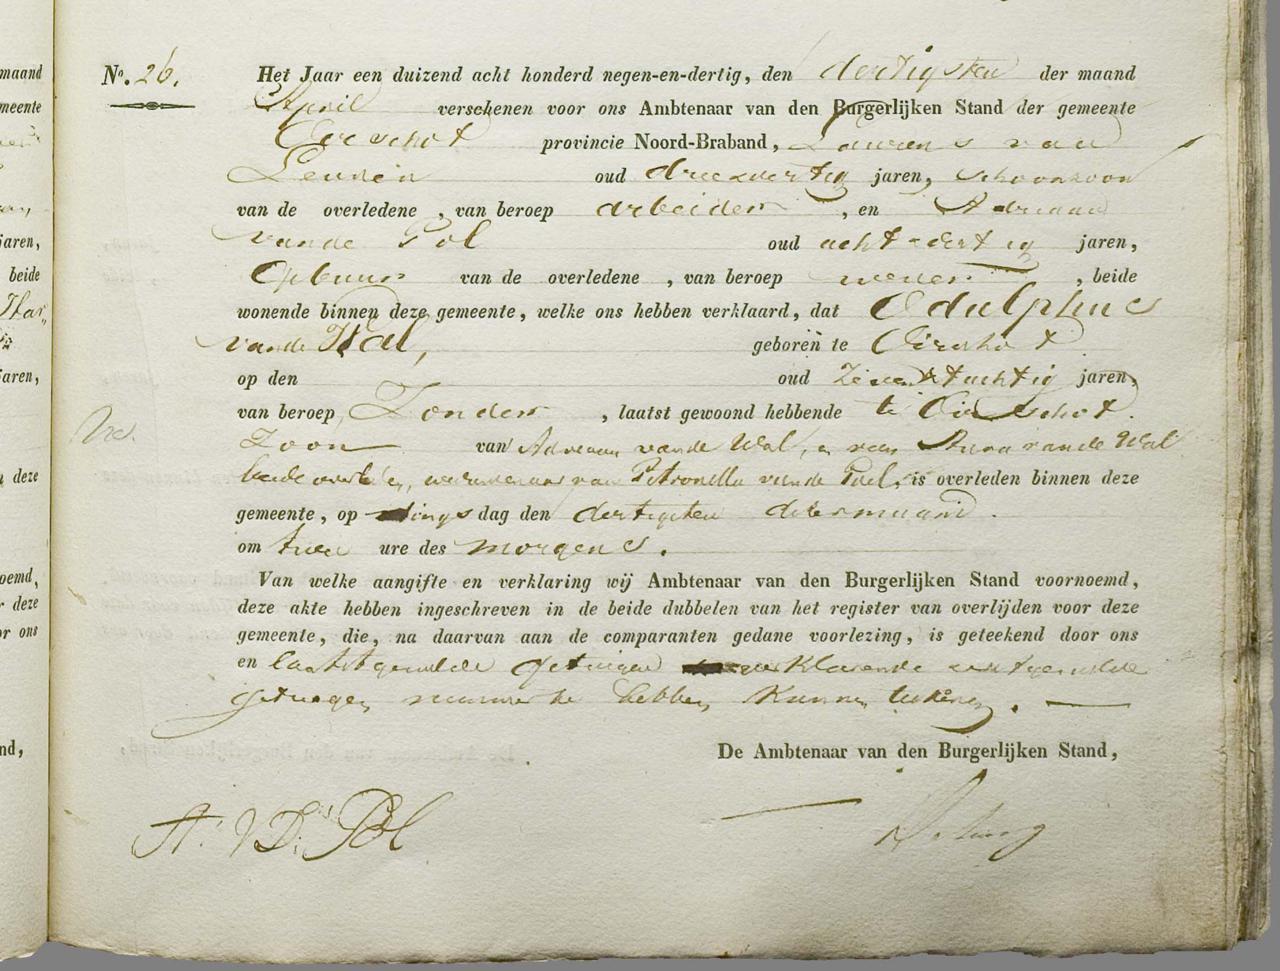 maand
meente
jaren,
beide
jaren,
n deze
oemd,
r deze
or ons
nd,
No. 26.
Het Jaar een duizend acht honderd negen-en-dertig, den dertigsten der maand
April verschenen voor ons Ambtenaar van den Burgerlijken Stand der gemeente
Oirschot provincie Noord-Braband, Laurens van
Leunen oud drieendertig jaren, schoonzoon
van de overledene, van beroep arbeider, en Adriaan
vande Pol oud acht-dertig jaren,
Opbuur van de overledene, van beroep wever, beide
wonende binnen deze gemeente, welke ons hebben verklaard, dat Odulphus
vande Wal, geboren te Oirschot
op den oud Zevenentachtig jaren,
van beroep Zonder, laatst gewoond hebbende te Oirschot.
Zoon van Adriaan vande Wal, en van Anna vande Wal
beide overleden, weduwenaar van Petronella vande Poel, is overleden binnen deze
gemeente, op dings dag den dertigsten dezer maand.
om twee ure des morgens.
Van welke aangifte en verklaring wij Ambtenaar van den Burgerlijken Stand voornoemd,
deze akte hebben ingeschreven in de beide dubbelen van het register van overlijden voor deze
gemeente, die, na daarvan aan de comparanten gedane voorlezing, is geteekend door ons
en laatstgemelde getuigen verklarende eerstgemelde
getuigen niet te hebben kunnen tekenen.
De Ambtenaar van den Burgerlijken Stand,
A. V D Pol